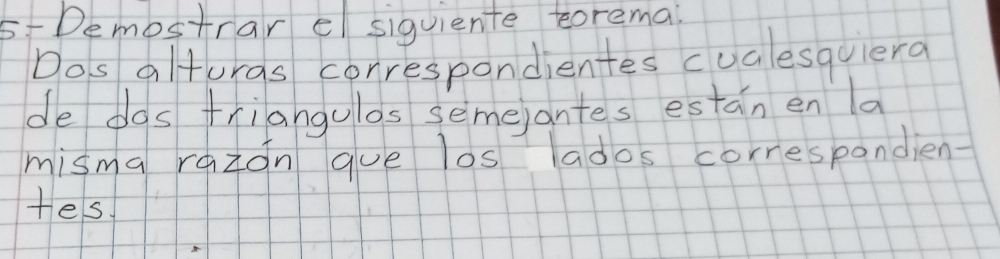 5- Demostrar el siguiente teorema:
Dos alturas correspondientes cualesquiera
de dos triangulos semejantes están en la
misma razón que los lados correspondien-
tes.